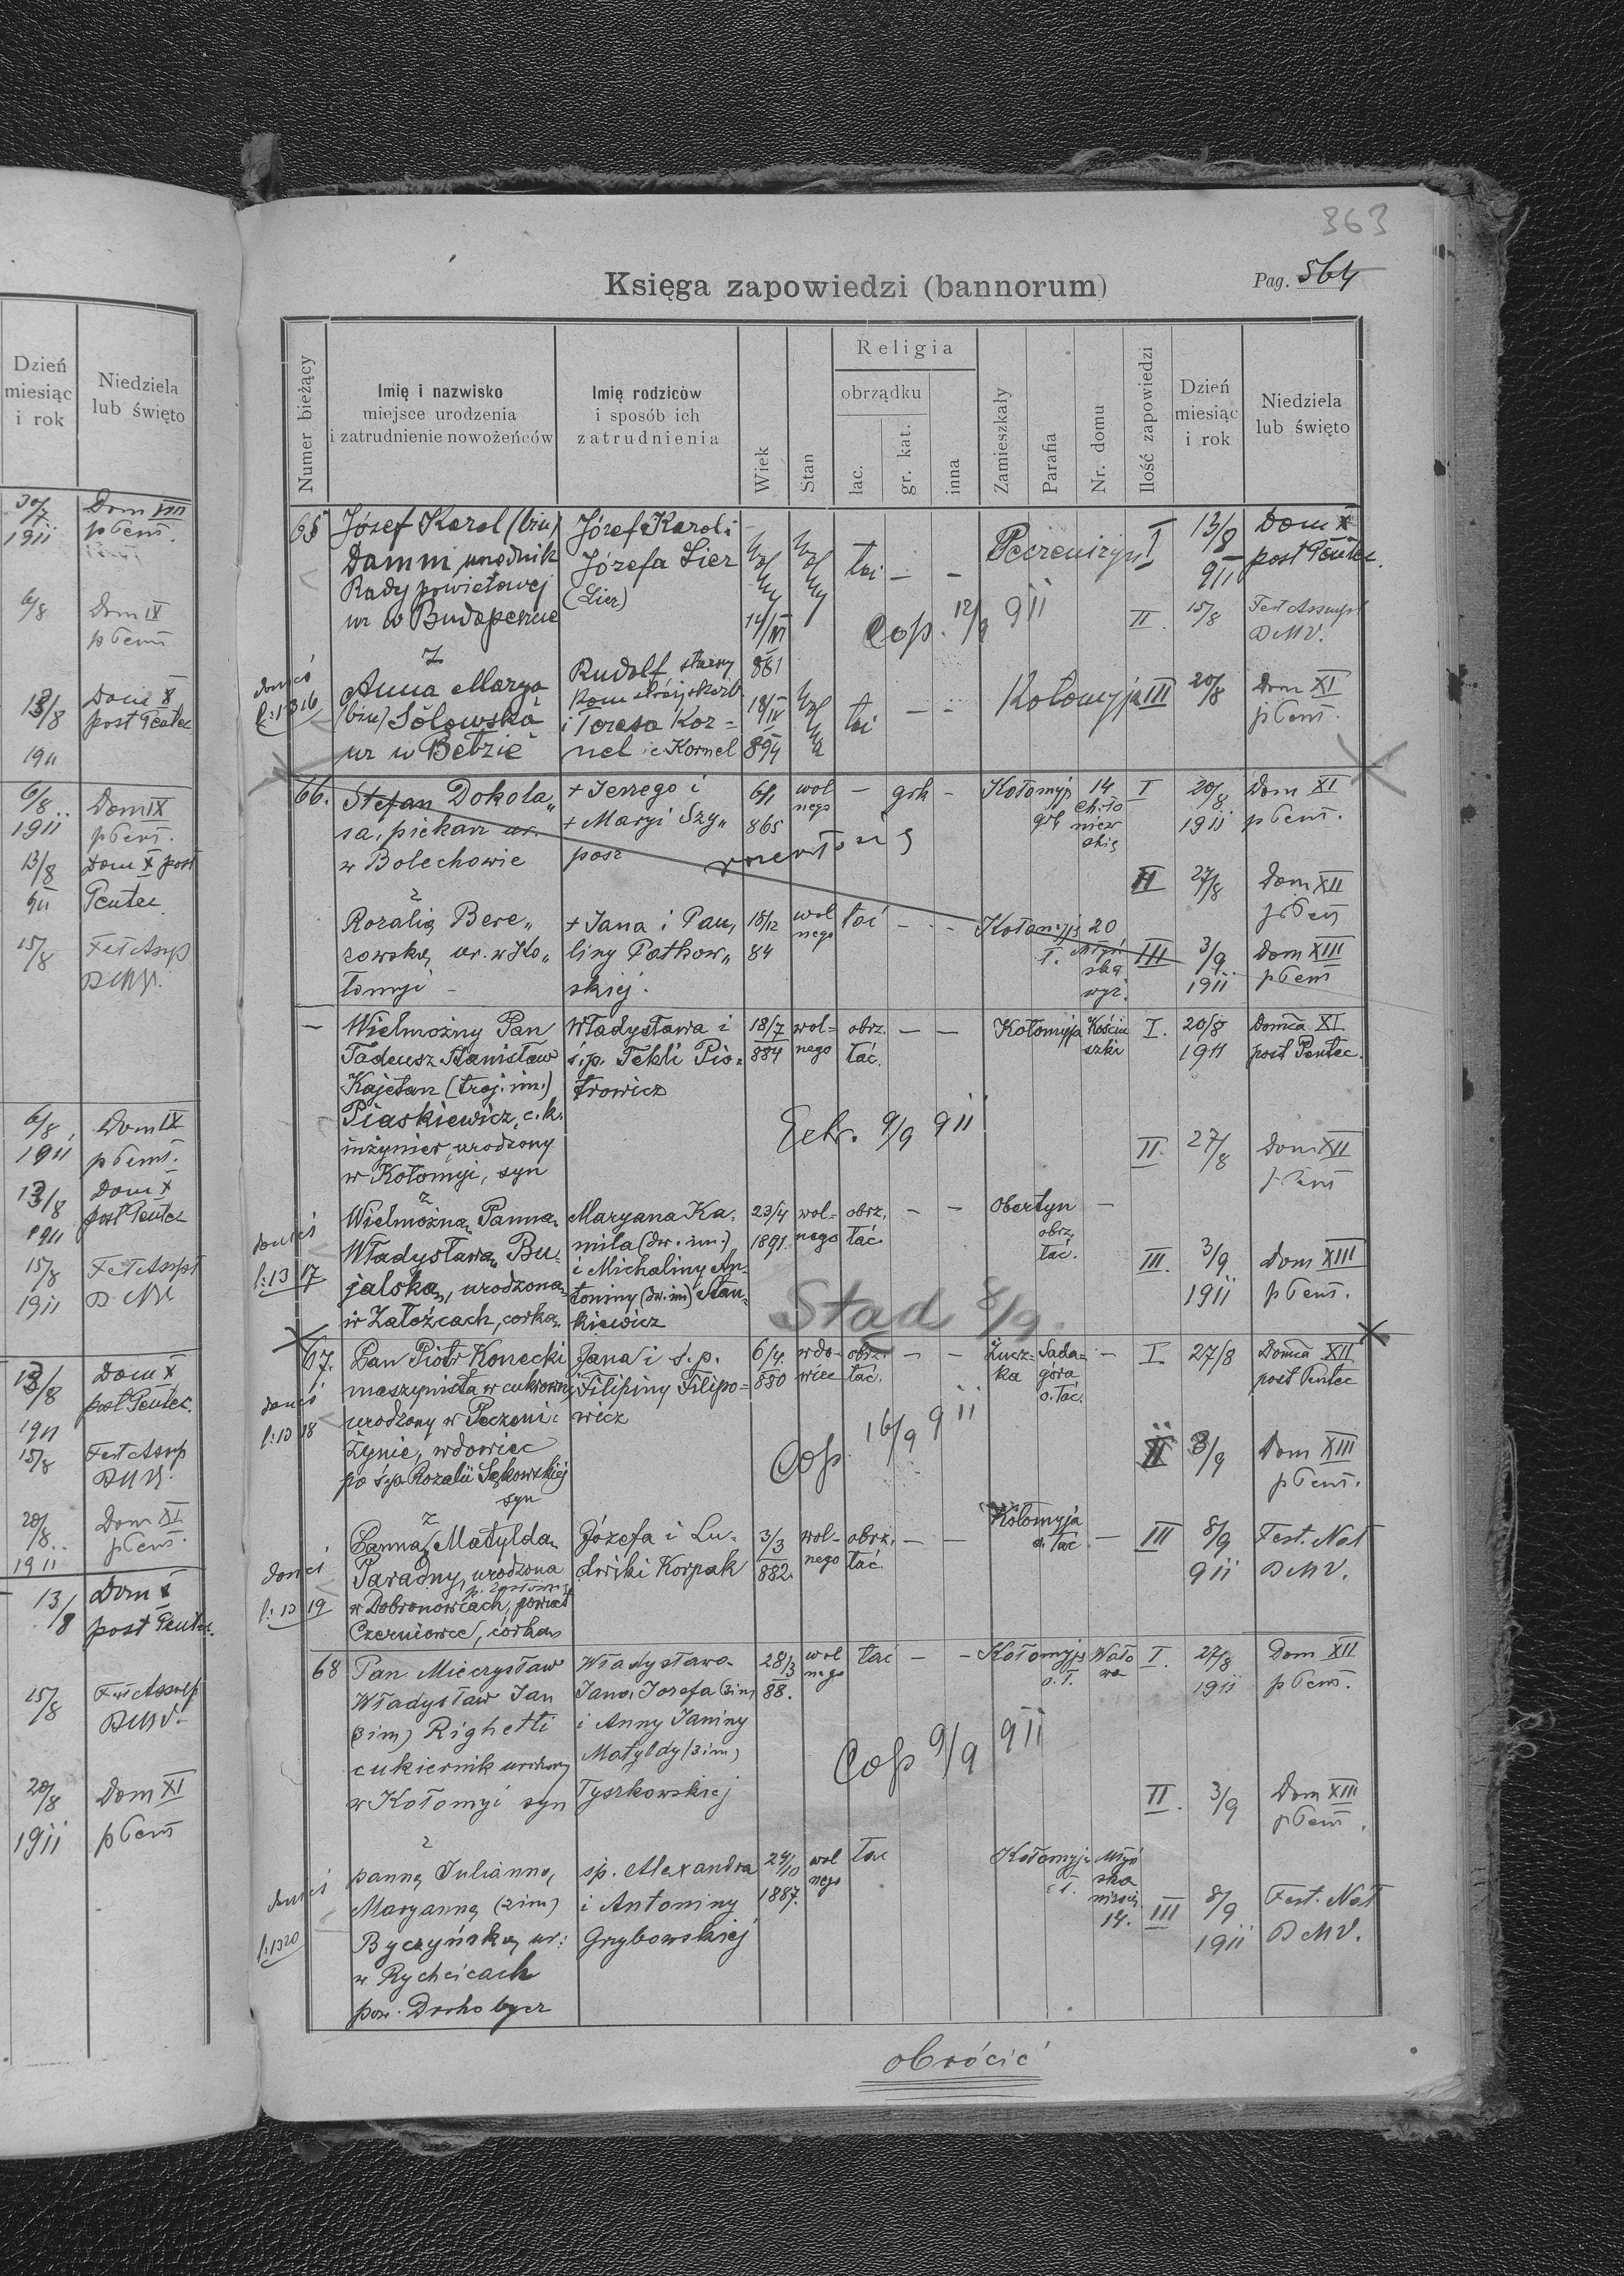 363
Księga zapowiedzi (bannorum)
Pag. 564
Numer bieżący
Imię i nazwisko
miejsce urodzenia
i zatrudnienie nowożeńców
Imię rodziców
i sposób ich
zatrudnienia
Wiek
Stan
Religia
obrządku
łac.
gr. kat.
inna
Zamieszkały
Parafia
Nr. domu
Ilość zapowiedzi
Dzień
miesiąc
i rok
Niedziela
lub święto
65 Józef Karol (bin) Józef Karol i I 13/8 Dom X
Damm urzędnik Józefa Lier łac — — 911 post Pentec.
Rady powiatowej (Lier)
ur w Budapeszcie 14/VI Cop. 12/9 911 II 15/8 Fest Assumpt
z Rudolf 861 BMV.
Anna Marya 18/IX łac — — Kołomyja III 20/8 Dom XI
(bin) Sołowska i Teresa Kor= p Pent.
ur w Bełzie nel 894
66. Stefan Dokola„ + Jerzego i 6/1 wol — grk — Kołomyj 14 I 20/8 Dom XI
sa, piekarz ur. + Maryi Szy„ 865 nego 1911 p Pent.
w Bolechowie posz
II 27/8 Dom XII
z p Pent
Rozalią Bere„ + Jana i Pau„ 18/12 wol łać — — Kołomyj 20
zowską ur. w Ko„ liny Pathow„ 84 nego III 3/9 Dom XIII
łomyi — skiej. 1911 p Pent
— Wielmożny Pan Władysława i 18/7 wol- obrz. — — Kołomyja Kościu I. 20/8 Domca XI
Tadeusz Stanisław ś.p. Tekli Pio- 884 nego łać. szki 1911 post Pentec.
Kajetan (troj. im.) trowicz
Piaskiewicz, c.k.
inżynier, urodzony 9/9 911 II. 27/8 Dom XII
w Kołomyi, syn p Pent
z
Wielmożną Panną Maryana Ka. 23/4 wol- obrz. — — Obertyn —
Władysławą Bu- mila (dw. im.) 1891. nego łać. obrz. łać. III. 3/9 Dom XIII
l: 13 17 jalską, urodzoną i Michaliny An- 1911 p Pent.
w Załoźcach, córką toniny (dw. im) Stan-
kiewicz
Stad 8/9.
67. Pan Piotr Konecki Jana i ś.p. 6/4. wdo- obrz. — — Łucz- Sada- — I. 27/8 Domca XII
maszynista w cukrowni Filipiny Filipo- 880 wiec łać. ka góra o. łać. post Pentec
l: 13 18 urodzony w Peczeni- wicz
żynie, wdowiec Cop 16/9 911 II 3/9 Dom XIII
po ś.p. Rozalii Sękowskiej p Pent.
syn
z
Panną Matyldą Józefa i Lu- 3/3 wol- obrz. — — Kołomyja — III 8/9 Fest. Nat
Paradny, urodzona dwiki Korpak 882. nego łać. o. łać 911 BMV.
l: 13 19 w Dobronowcach, powiat
Czerniowce, córką
68 Pan Mieczysław Władysława 28/3 wol łać — — Kołomyja Wało I. 27/8 Dom XII
Władysław Jan Jana, Jozefa (3im) 88. nego o. ł. wa 1911 p Pent.
(3im) Righetti i Anny Janiny
cukiernik urodzony Matyldy (3im) Cop 9/9 911
w Kołomyi syn Tyszkowskiej II. 3/9 Dom XIII
z p Pent.
panną Julianną, śp. Alexandra 24/10 wol łac Kołomyja
Maryanną (2im) i Antoniny 1887. nego 14. III 8/9 Fest. Nat
l: 1320 Byczyńską ur: Grzybowskiej 1911 BMV.
w Rychcicach
pow. Drohobycz
obrócić
Dzień
miesiąc
i rok
Niedziela
lub święto
30/7 Dom VIII
1911 p Pent.
6/8 Dom IX
p Pent
13/8 Dom X
post Pentec
1911
6/8 Dom IX
1911 p Pent.
13/8 Dom X post
911 Pentec.
15/8 Fest Assp
BMV.
6/8 Dom IX
1911 p Pent.
13/8 Dom X
1911 post Pentec
15/8 Fest Asspt
1911 BMV
13/8 Dom X
post Pentec.
1911
15/8 Fest Assp
BMV.
20/8 Dom XI
1911 p Pent.
13/8 Dom X
post Pentec.
15/8 Fest Assump
BMV.
20/8 Dom XI
1911 p Pent